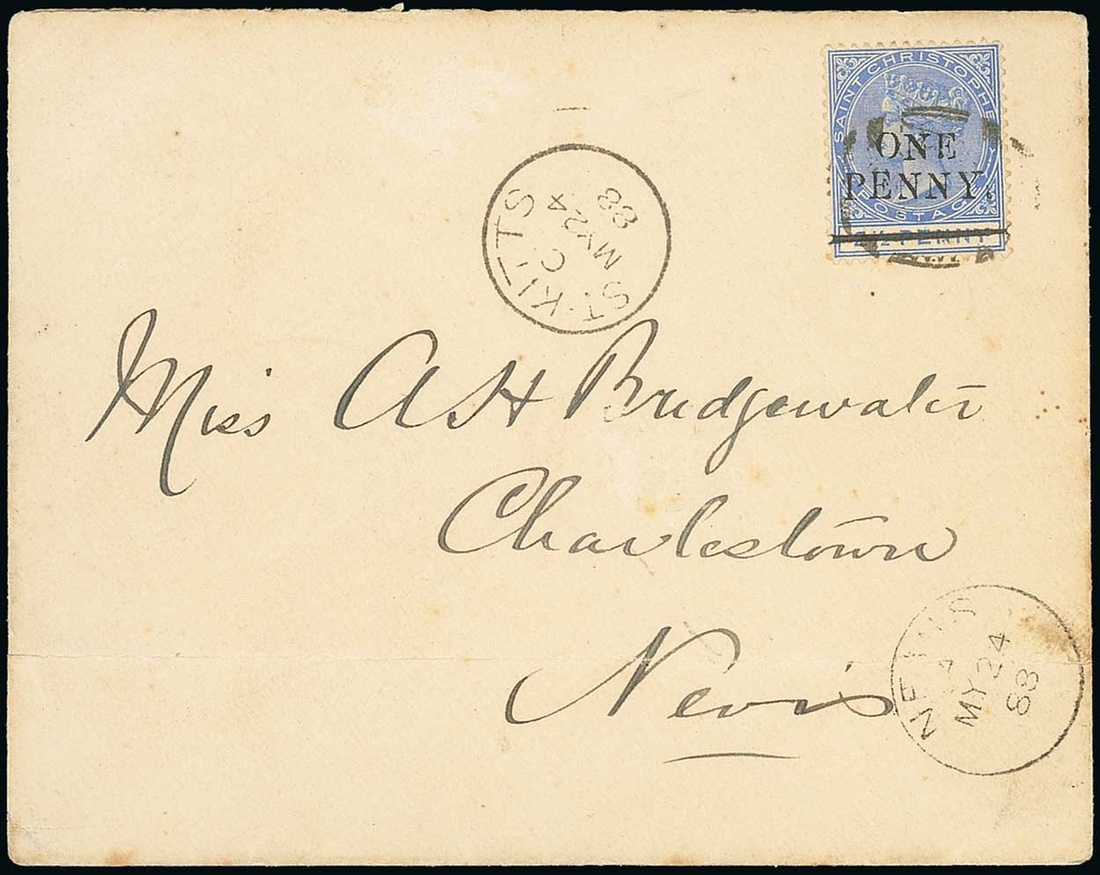 SAINT CHRISTOPHER
ONE
PENNY.
POSTAGE
2½ PENNY
ST. KITTS
C
MY 24
88
Miss A H Bridgewater
Charlestown
Nevis
NEVIS
A
MY 24
88